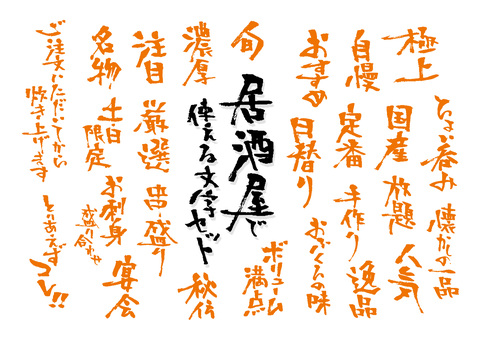 極上
ちょい呑み
国産
放題
懐かしの一品
人気
自慢
定番
手作り
逸品
おすすめ
日替り
おふくろの味
旬
ボリューム満点
居酒屋で
使える文字セット
濃厚
秘伝
注目
厳選
串盛り
名物
土日限定
お刺身
盛り合わせ
宴会
ご注文いただいてから
炊き上げます
とりあえず
コレ!!